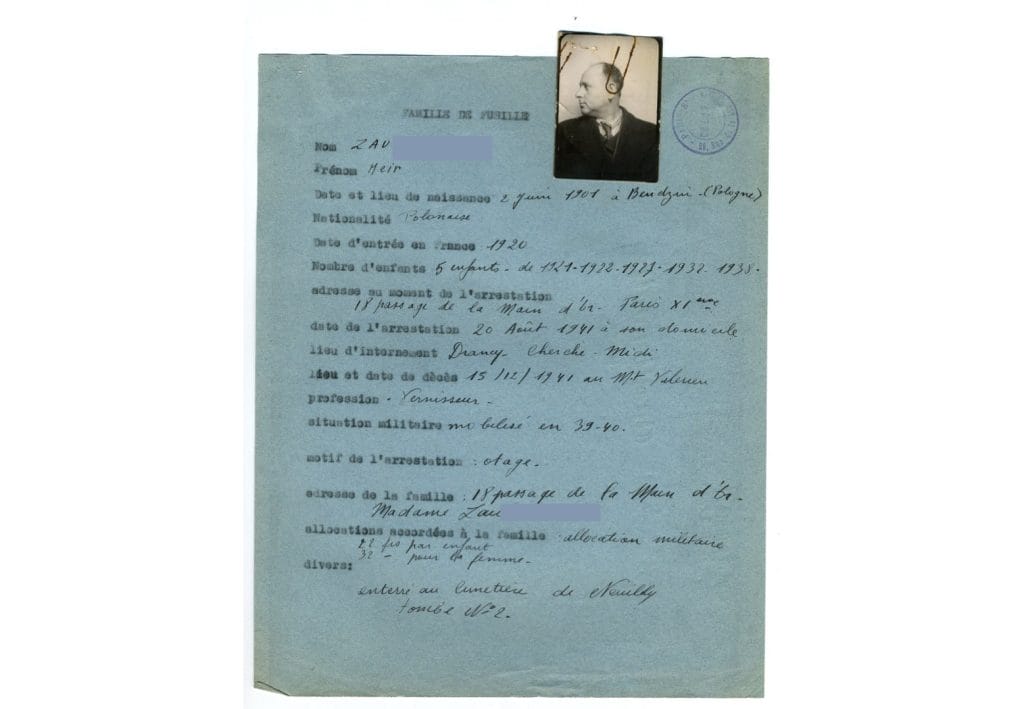 FAMILLE DE FUSILLE
Nom ZAU
Prénom Meir
Date et lieu de naissance 2 Juin 1901 à Bendzin - (Pologne)
Nationalité Polonaise
Date d'entrée en France 1920
Nombre d'enfants 5 enfants - de 1921-1922-1927-1932-1938-
adresse au moment de l'arrestation
18 passage de la Main d'Or - Paris XI eme
date de l'arrestation 20 Août 1941 à son domicile
lieu d'internement Drancy - Cherche - Midi
lieu et date de décès 15/12/1941 au Mt Valerien
profession - Vernisseur -
situation militaire mobilisé en 39-40.
motif de l'arrestation : otage -
adresse de la famille : 18 passage de la Main d'Or -
Madame Zau
allocations accordées à la famille allocation militaire
22 frs par enfant
32 - pour la femme -
divers:
enterré au Cimetière de Neuilly
tombe No 2.